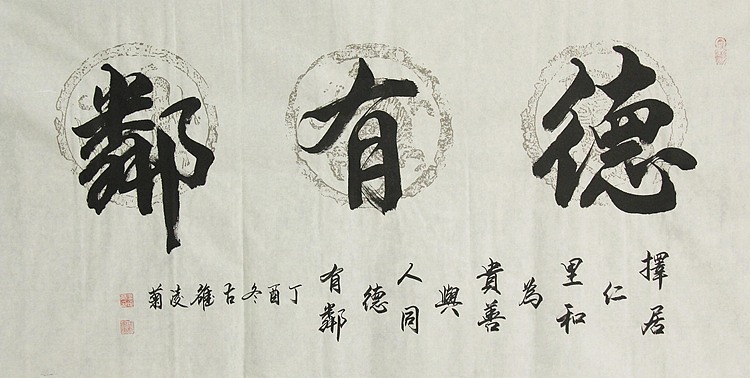 德有鄰
擇居仁里和為貴善與人同德有鄰
丁酉冬古雍凌菊